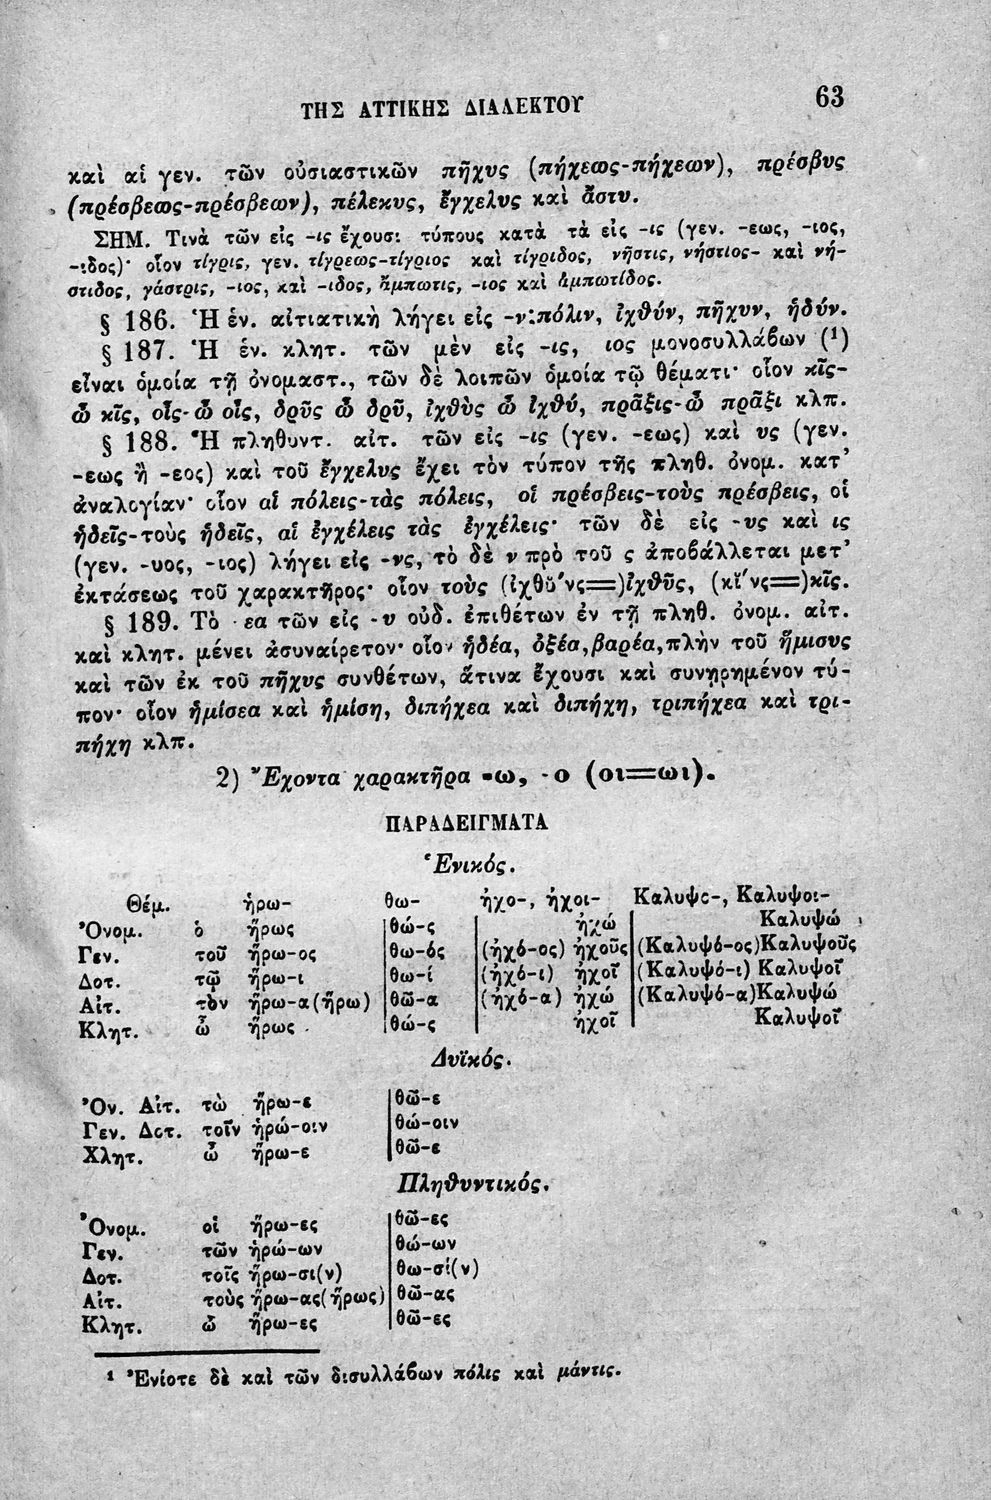 ΤΗΣ ΑΤΤΙΚΗΣ ΔΙΑΛΕΚΤΟΥ 63
καὶ αἱ γεν. τῶν οὐσιαστικῶν πῆχυς (πήχεως-πήχεων), πρέσβυς
(πρέσβεως-πρέσβεων), πέλεκυς, ἔγχελυς καὶ ἄστυ.
ΣΗΜ. Τινὰ τῶν εἰς -ις ἔχουσι τύπους κατὰ τὰ εἰς -ις (γεν. -εως, -ιος,
-ιδος)· οἷον τίγρις, γεν. τίγρεως-τίγριος καὶ τίγριδος, νῆστις, νήστιος- καὶ νή-
στιδος, γάστρις, -ιος, καὶ -ιδος, ἄμπωτις, -ιος καὶ ἀμπωτίδος.
§ 186. Ἡ ἑν. αἰτιατικὴ λήγει εἰς -ν: πόλιν, ἰχθύν, πῆχυν, ἡδύν.
§ 187. Ἡ ἑν. κλητ. τῶν μὲν εἰς -ις, ιος μονοσυλλάβων (¹)
εἶναι ὁμοία τῇ ὀνομαστ., τῶν δὲ λοιπῶν ὁμοία τῷ θέματι· οἷον κῖς-
ὦ κῖς, οἷς-ὦ οἷς, δρῦς ὦ δρῦ, ἰχθὺς ὦ ἰχθύ, πρᾶξις-ὦ πρᾶξι κλπ.
§ 188. Ἡ πληθυντ. αἰτ. τῶν εἰς -ις (γεν. -εως) καὶ υς (γεν.
-εως ἢ -εος) καὶ τοῦ ἔγχελυς ἔχει τὸν τύπον τῆς πληθ. ὀνομ. κατ'
ἀναλογίαν· οἷον αἱ πόλεις-τὰς πόλεις, οἱ πρέσβεις-τοὺς πρέσβεις, οἱ
ἡδεῖς-τοὺς ἡδεῖς, αἱ ἐγχέλεις τὰς ἐγχέλεις· τῶν δὲ εἰς -υς καὶ ις
(γεν. -υος, -ιος) λήγει εἰς -νς, τὸ δὲ ν πρὸ τοῦ ς ἀποβάλλεται μετ'
ἐκτάσεως τοῦ χαρακτῆρος· οἷον τοὺς (ἰχθῠ́νς=)ἰχθῦς, (κῐ́νς=)κῖς.
§ 189. Τὸ εα τῶν εἰς -υ οὐδ. ἐπιθέτων ἐν τῇ πληθ. ὀνομ. αἰτ.
καὶ κλητ. μένει ἀσυναίρετον· οἷον ἡδέα, ὀξέα, βαρέα, πλὴν τοῦ ἥμισυς
καὶ τῶν ἐκ τοῦ πῆχυς συνθέτων, ἅτινα ἔχουσι καὶ συνῃρημένον τύ-
πον· οἷον ἡμίσεα καὶ ἡμίση, διπήχεα καὶ διπήχη, τριπήχεα καὶ τρι-
πήχη κλπ.
2) Ἔχοντα χαρακτῆρα -ω, -ο (οι=ωι).
ΠΑΡΑΔΕΙΓΜΑΤΑ
Ἑνικός.
Θέμ. ἡρω- θω- ἠχο-, ἠχοι- Καλυψο-, Καλυψοι-
Ὀνομ. ὁ ἥρως θώ-ς ἠχώ Καλυψώ
Γεν. τοῦ ἥρω-ος θω-ός (ἠχό-ος) ἠχοῦς (Καλυψό-ος)Καλυψοῦς
Δοτ. τῷ ἥρω-ι θω-ί (ἠχό-ι) ἠχοῖ (Καλυψό-ι) Καλυψοῖ
Αἰτ. τὸν ἥρω-α(ἥρω) θῶ-α (ἠχό-α) ἠχώ (Καλυψό-α)Καλυψώ
Κλητ. ὦ ἥρως θώ-ς ἠχοῖ Καλυψοῖ
Δυϊκός.
Ὀν. Αἰτ. τὼ ἥρω-ε θῶ-ε
Γεν. Δοτ. τοῖν ἡρώ-οιν θώ-οιν
Χλητ. ὦ ἥρω-ε θῶ-ε
Πληθυντικός.
Ὀνομ. οἱ ἥρω-ες θῶ-ες
Γεν. τῶν ἡρώ-ων θώ-ων
Δοτ. τοῖς ἥρω-σι(ν) θω-σί(ν)
Αἰτ. τοὺς ἥρω-ας(ἥρως) θῶ-ας
Κλητ. ὦ ἥρω-ες θῶ-ες
¹ Ἐνίοτε δὲ καὶ τῶν δισυλλάβων πόλις καὶ μάντις.